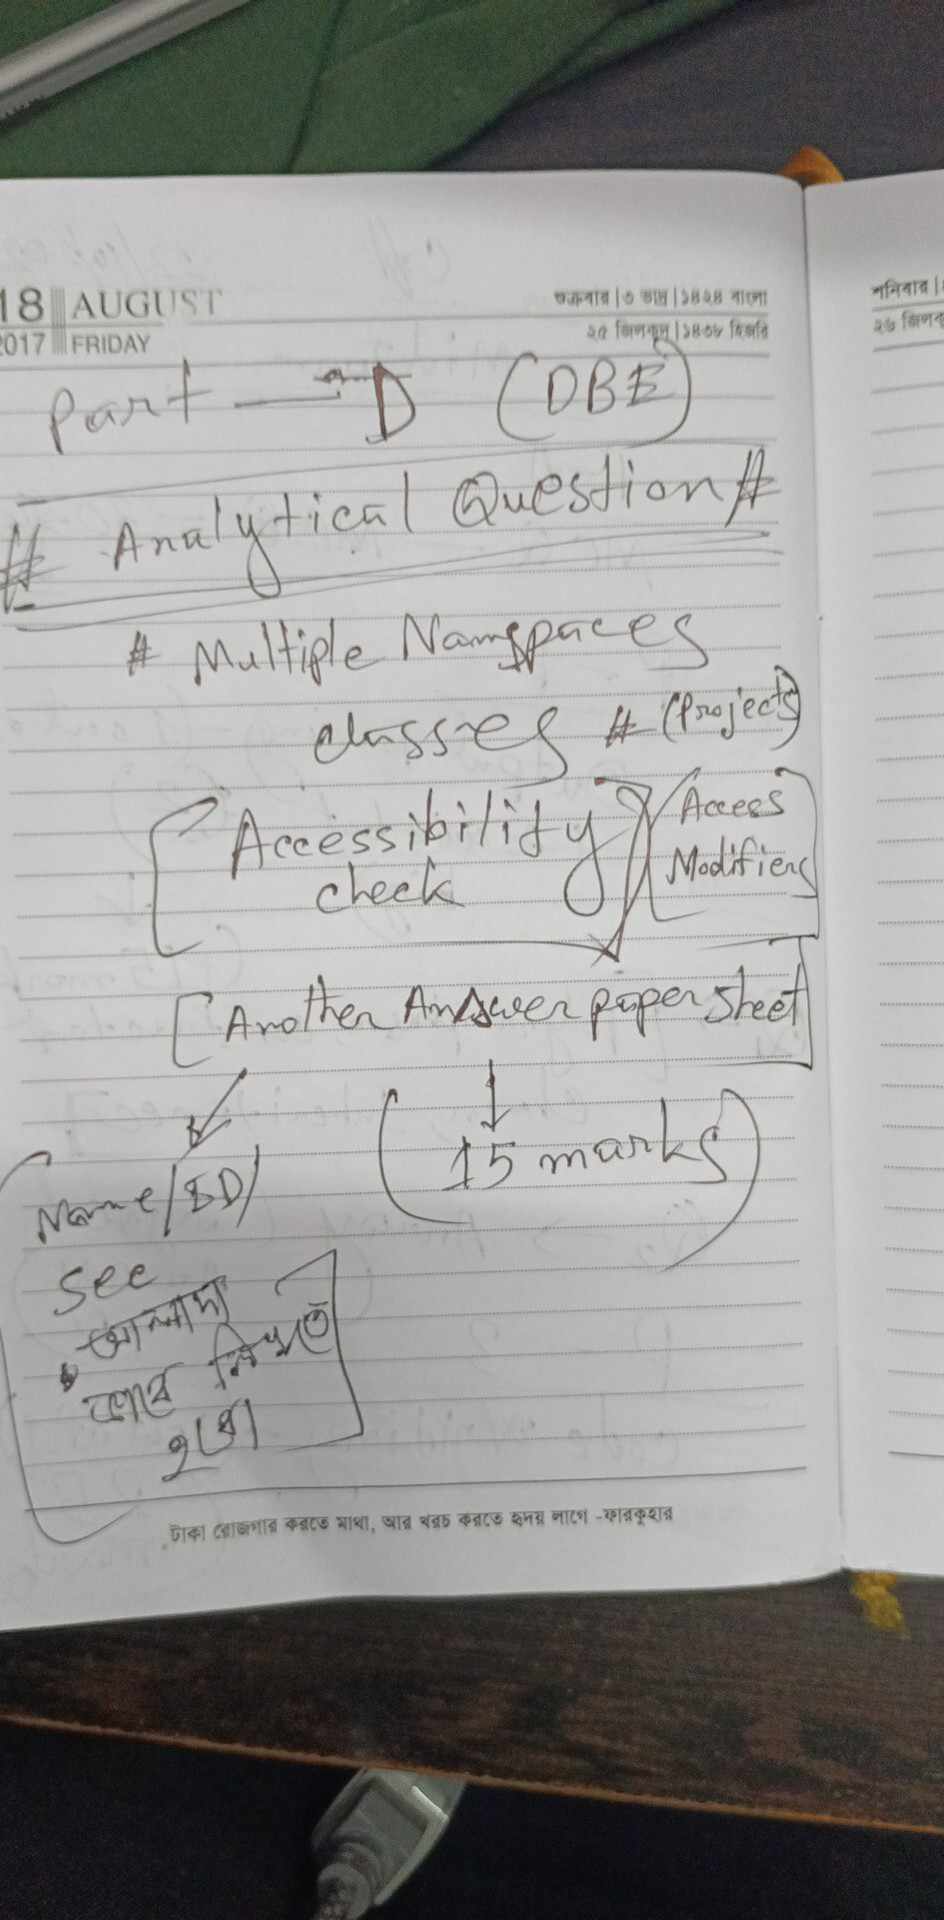 18 AUGUST
2017 FRIDAY
শুক্রবার | ৩ ভাদ্র | ১৪২৪ বাংলা
২৫ জিলকদ | ১৪৩৮ হিজরি
শনিবার |
২৬
Part — D (DBE)
# Analytical Question #
# Multiple Namspaces
classes # (Projects)
[Accessibility check] [Access Modifiers]
[Another Answer paper sheet]
(15 marks)
Name/ID/
see
আলাদা
ভাবে লিখতে
হবে
টাকা রোজগার করতে মাথা, আর খরচ করতে হৃদয় লাগে -ফারকুহার